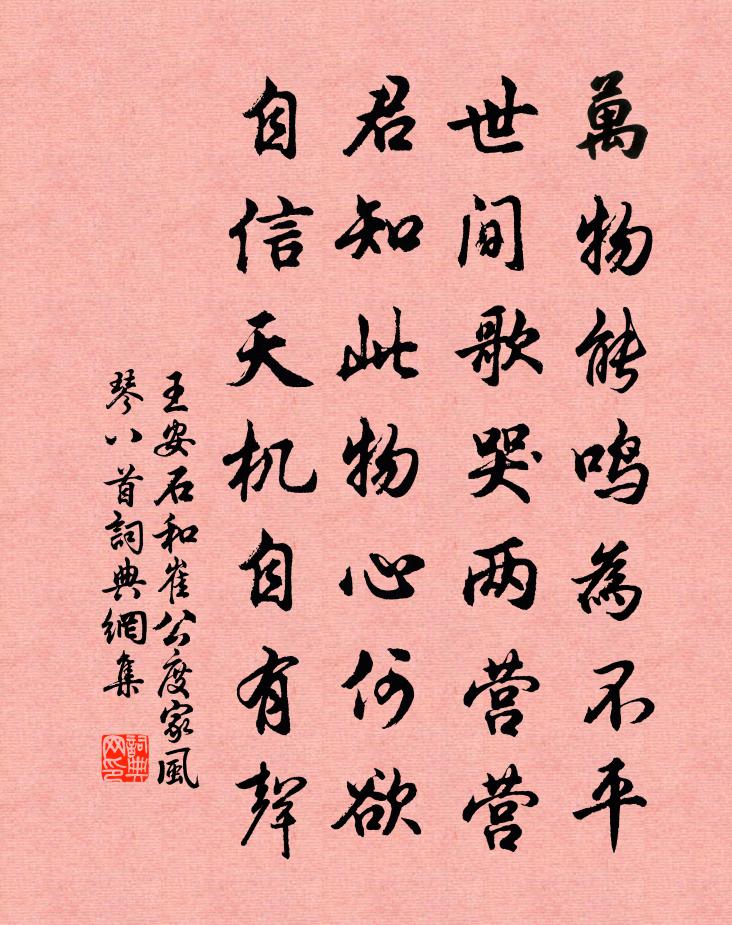 萬物能鸣為不平
世间歌哭两营营
君知此物心何欲
自信天机自有聲
王安石和崔公度家風
琴八首詞典網集
詞典网印